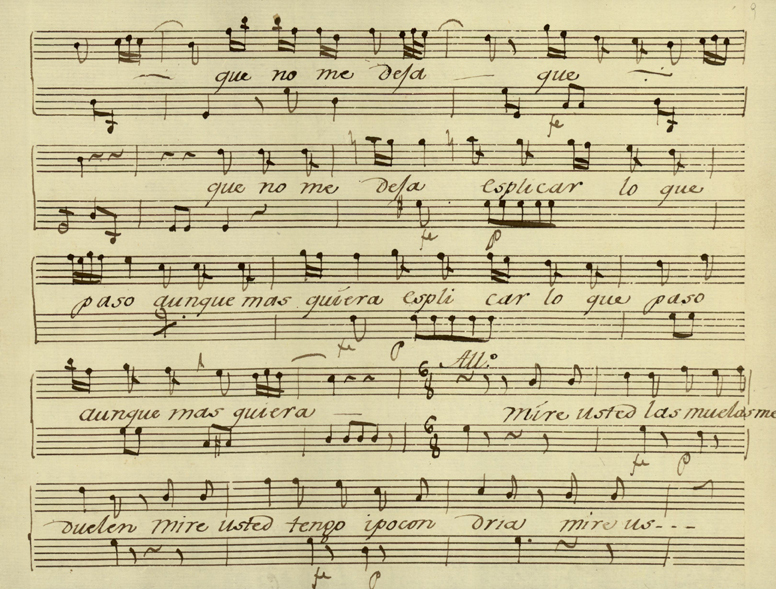 9
que no me deja que
fe
que no me deja esplicar lo que
fe p
paso aunque mas quiera espli car lo que paso
fe p
6 8 All.º
aunque mas quiera mire usted las muelas me
6 8
fe p
duelen mire usted tengo ipocon dria mire us---
fe p